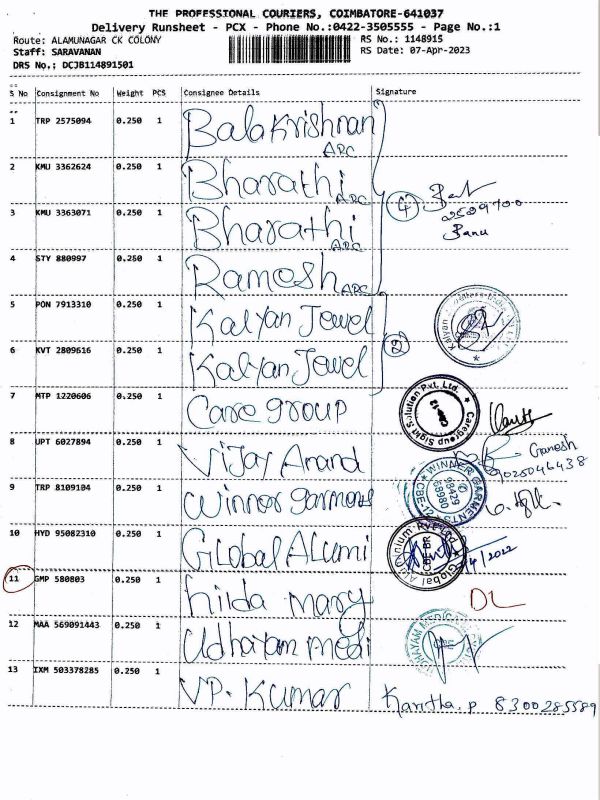 THE PROFESSIONAL COURIERS, COIMBATORE-641037
Delivery Runsheet - PCX - Phone No.:0422-3505555 - Page No.:1
Route: ALAMUNAGAR CK COLONY RS No.: 1148915
Staff: SARAVANAN RS Date: 07-Apr-2023
DRS No.: DCJB114891501
S No Consignment No Weight PCS Consignee Details Signature
1 TRP 2575094 0.250 1 Balakrishnan
ARC
2 KMU 3362624 0.250 1 Bharathi ARC
4
2589700
Banu
3 KMU 3363071 0.250 1 Bharathi ARC
4 STY 880997 0.250 1 Ramesh ARC
5 PON 7913310 0.250 1 Kalyan Jewel
2
Kalyan
6 KVT 2809616 0.250 1 Kalyan Jewel
7 MTP 1220606 0.250 1 Care group
Caregroup Sight Solution Pvt. Ltd.
8 UPT 6027894 0.250 1 Vijay Anand
Ganesh
9025046438
9 TRP 8109104 0.250 1 Winner garments
WINNER GARMENTS
CBE-12
98429
68980
10 HYD 95082310 0.250 1 Global Alumi
Global Aluminium Pvt Ltd
11 GMP 580803 0.250 1 hilda mary DL
12 MAA 569091443 0.250 1 Udhayam medi
UDHAYAM MEDICAL
13 IXM 503378285 0.250 1 VP. Kumar Kavitha. P 8300285589